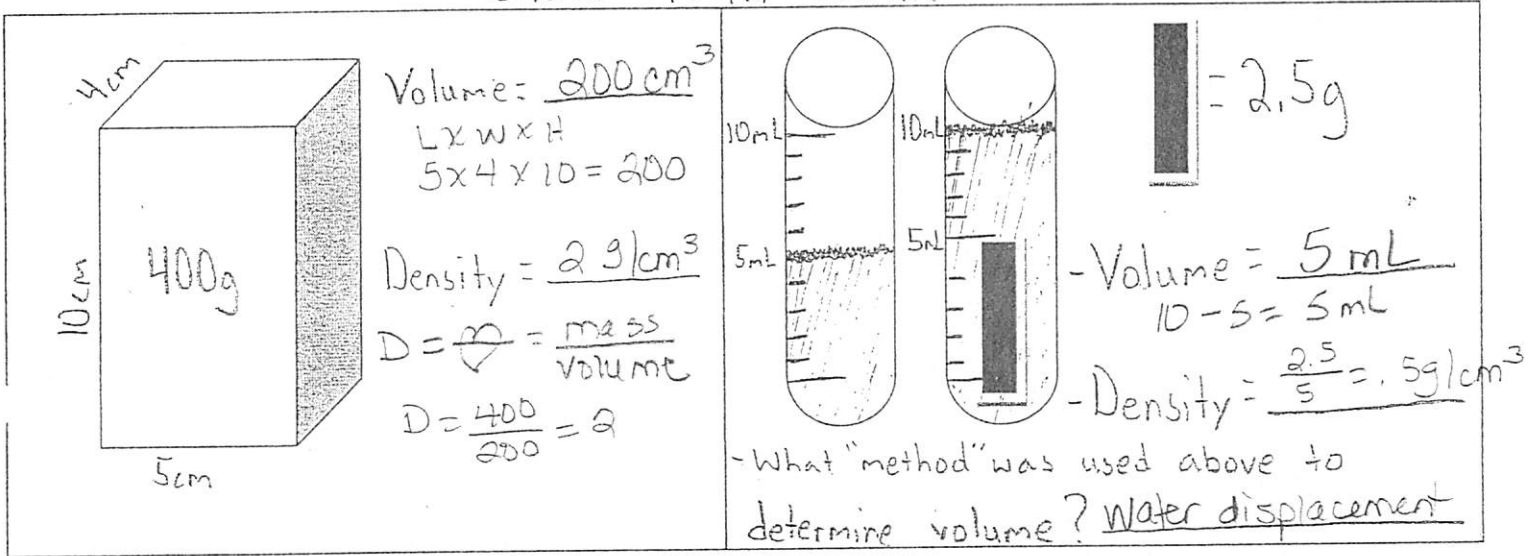 4cm
10cm
400g
5cm
Volume= 200 cm³
L x W x H
5 x 4 x 10 = 200
Density = 2 g/cm³
D = m/v = mass/volume
D = 400/200 = 2
10mL
5mL
10mL
5mL
= 2.5g
-Volume = 5 mL
10-5= 5 mL
-Density = 2.5/5 = .5g/cm³
-What "method" was used above to
determine volume? Water displacement